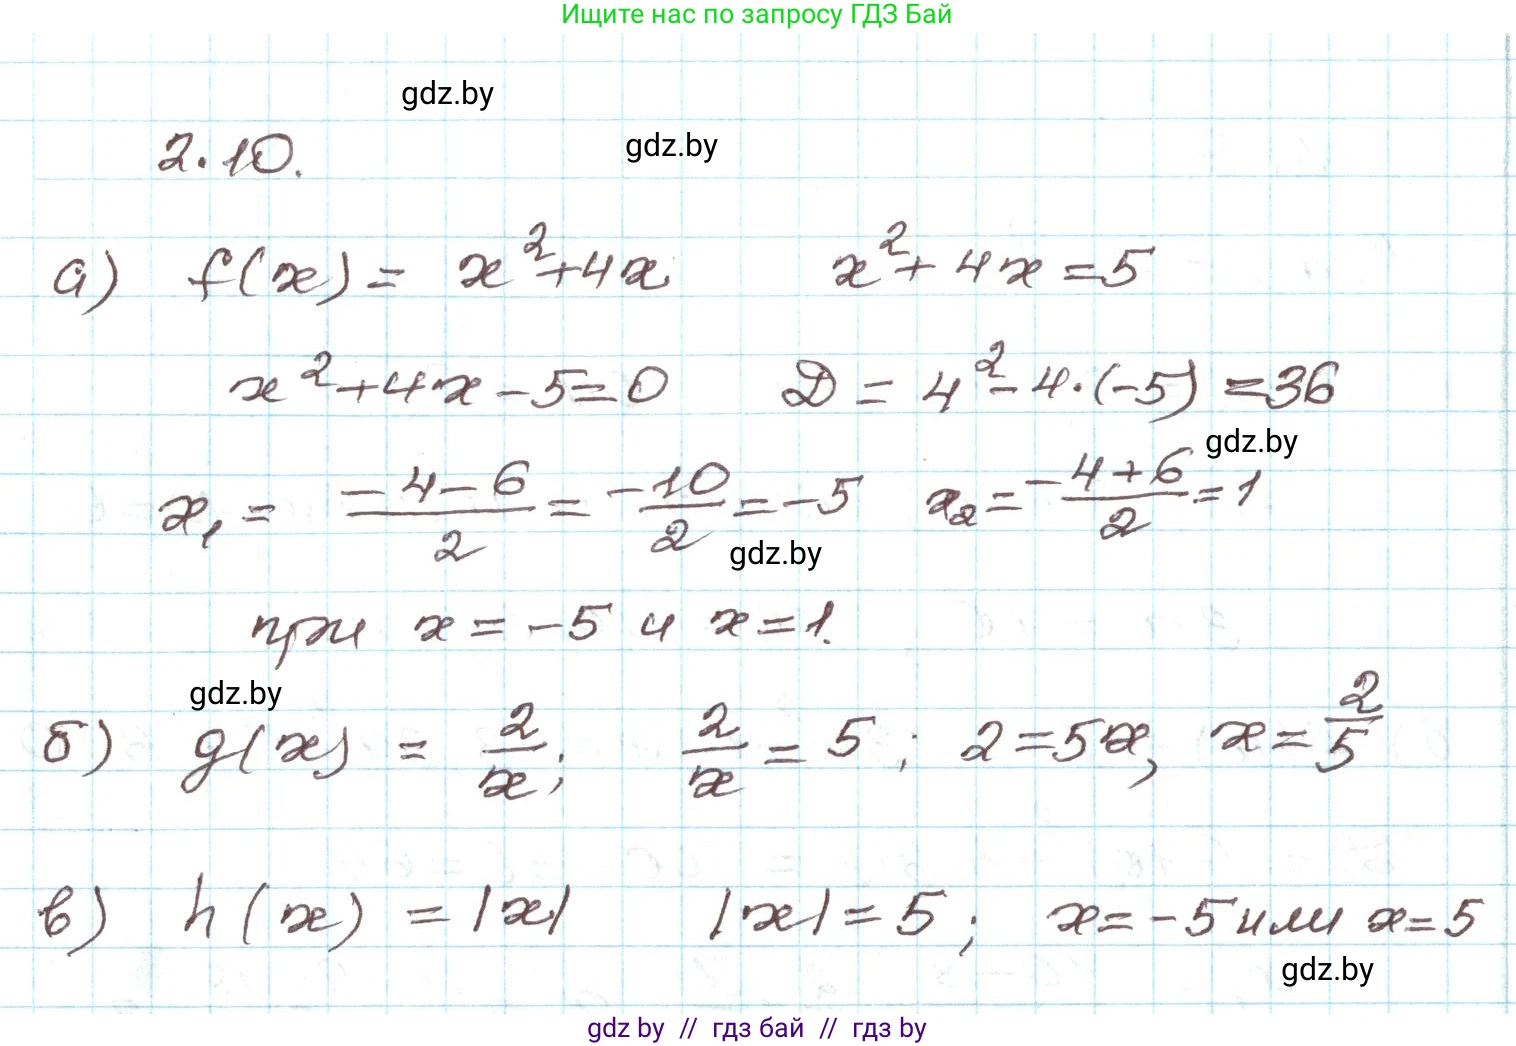 Ищите нас по запросу ГДЗ Бай
gdz.by
gdz.by
2.10.
а) f(x) = x²+4x x²+4x=5
x²+4x-5=0 D = 4²-4·(-5) =36
gdz.by
x₁ = (-4-6)/2 = -10/2 = -5 x₂ = (-4+6)/2 = 1
gdz.by
при x = -5 и x=1.
gdz.by
б) g(x) = 2/x; 2/x = 5; 2=5x, x=2/5
в) h(x) = |x| |x|=5; x=-5 или x=5
gdz.by
gdz by // гдз бай // гдз by